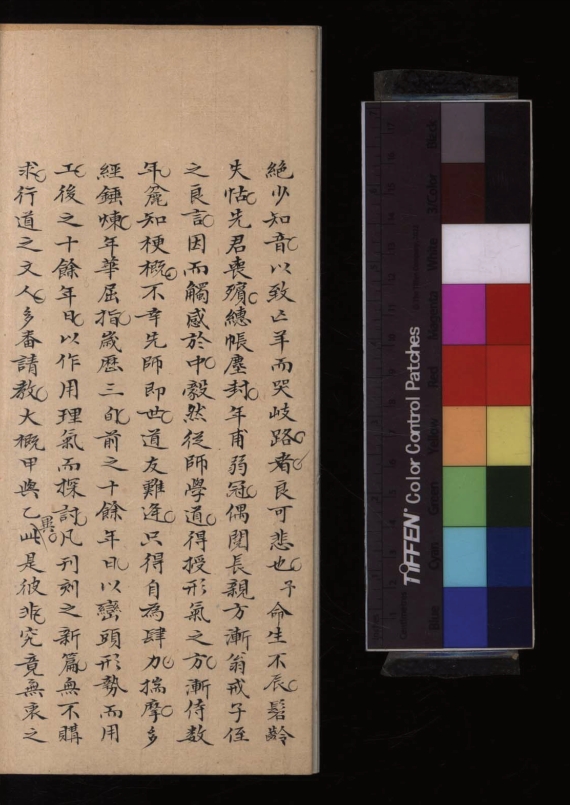 絶少知音以致亡羊而哭岐路者良可悲也予命生不辰髫齡
失怙先君喪殯繐帳塵封年甫弱冠偶閱長親方漸翁戒子侄
之良言因而觸感於中毅然從師學道得授形氣之方漸侍数
年麄知梗概不幸先師即世道友難逢只得自為肆力揣摩多
經錘煉年華屈指歲歷三旬前之十餘年日以巒頭形勢而用
工後之十餘年日以作用理氣而探討凡刊刻之新篇無不購
求行道之文人多番請教大概甲與乙異此是彼非究竟無衷之
TIFFEN Color Control Patches
Blue
Cyan
Green
Yellow
Red
Magenta
White
3/Color
Black